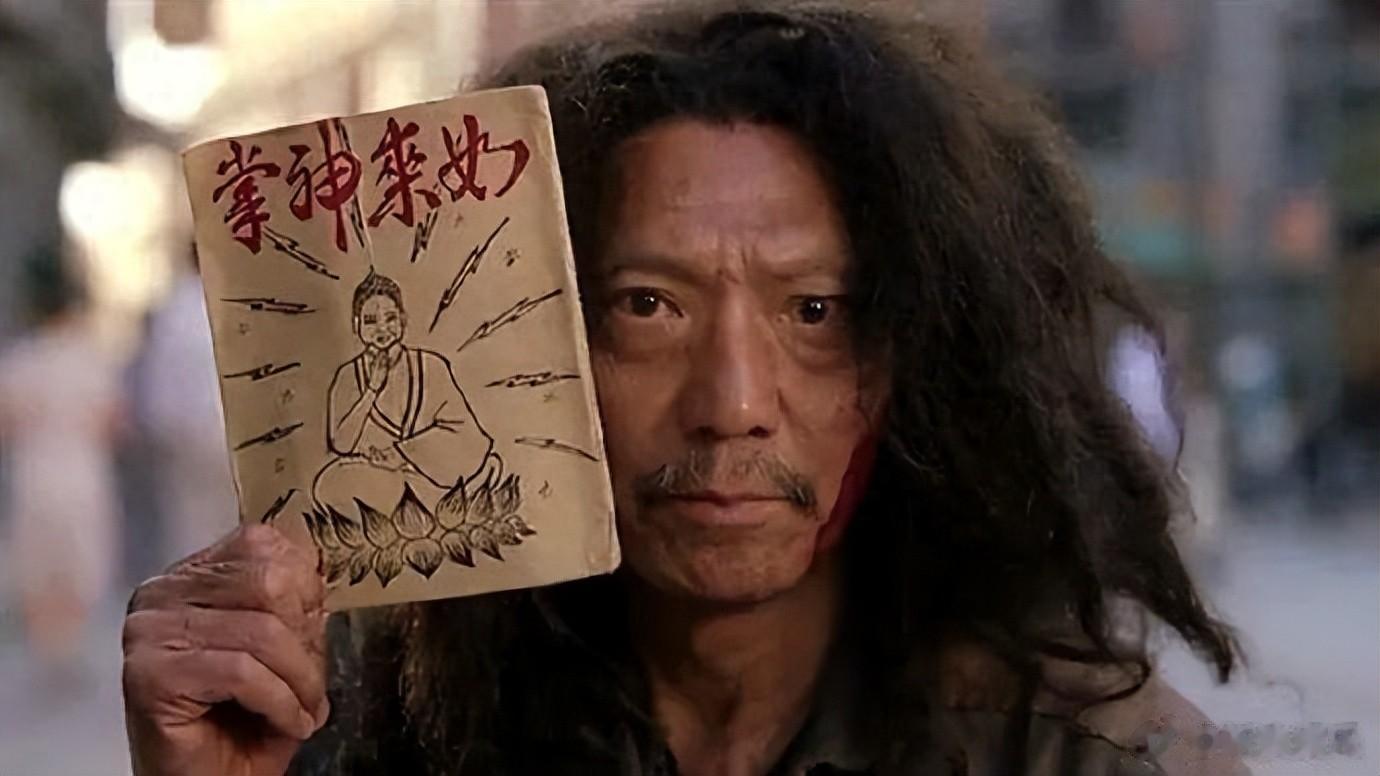 如来神掌